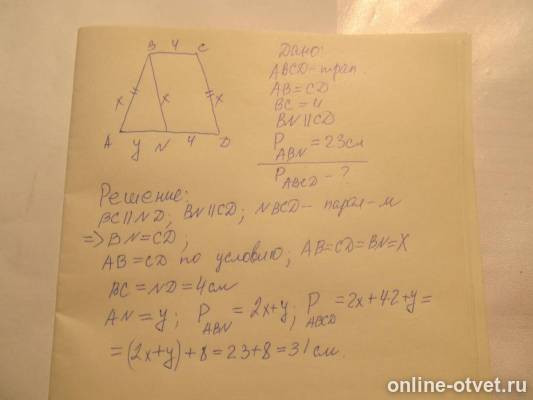 B 4 C
x x x
A y N 4 D
Дано:
ABCD – трап.
AB = CD
BC = 4
BN || CD
P ABN = 23 см
P ABCD – ?
Решение:
BC || ND; BN || CD; NBCD – парал-м
=> BN = CD;
AB = CD по условию; AB = CD = BN = X
BC = ND = 4 см
AN = y; P ABN = 2x + y; P ABCD = 2x + 4·2 + y =
= (2x + y) + 8 = 23 + 8 = 31 см.
online-otvet.ru